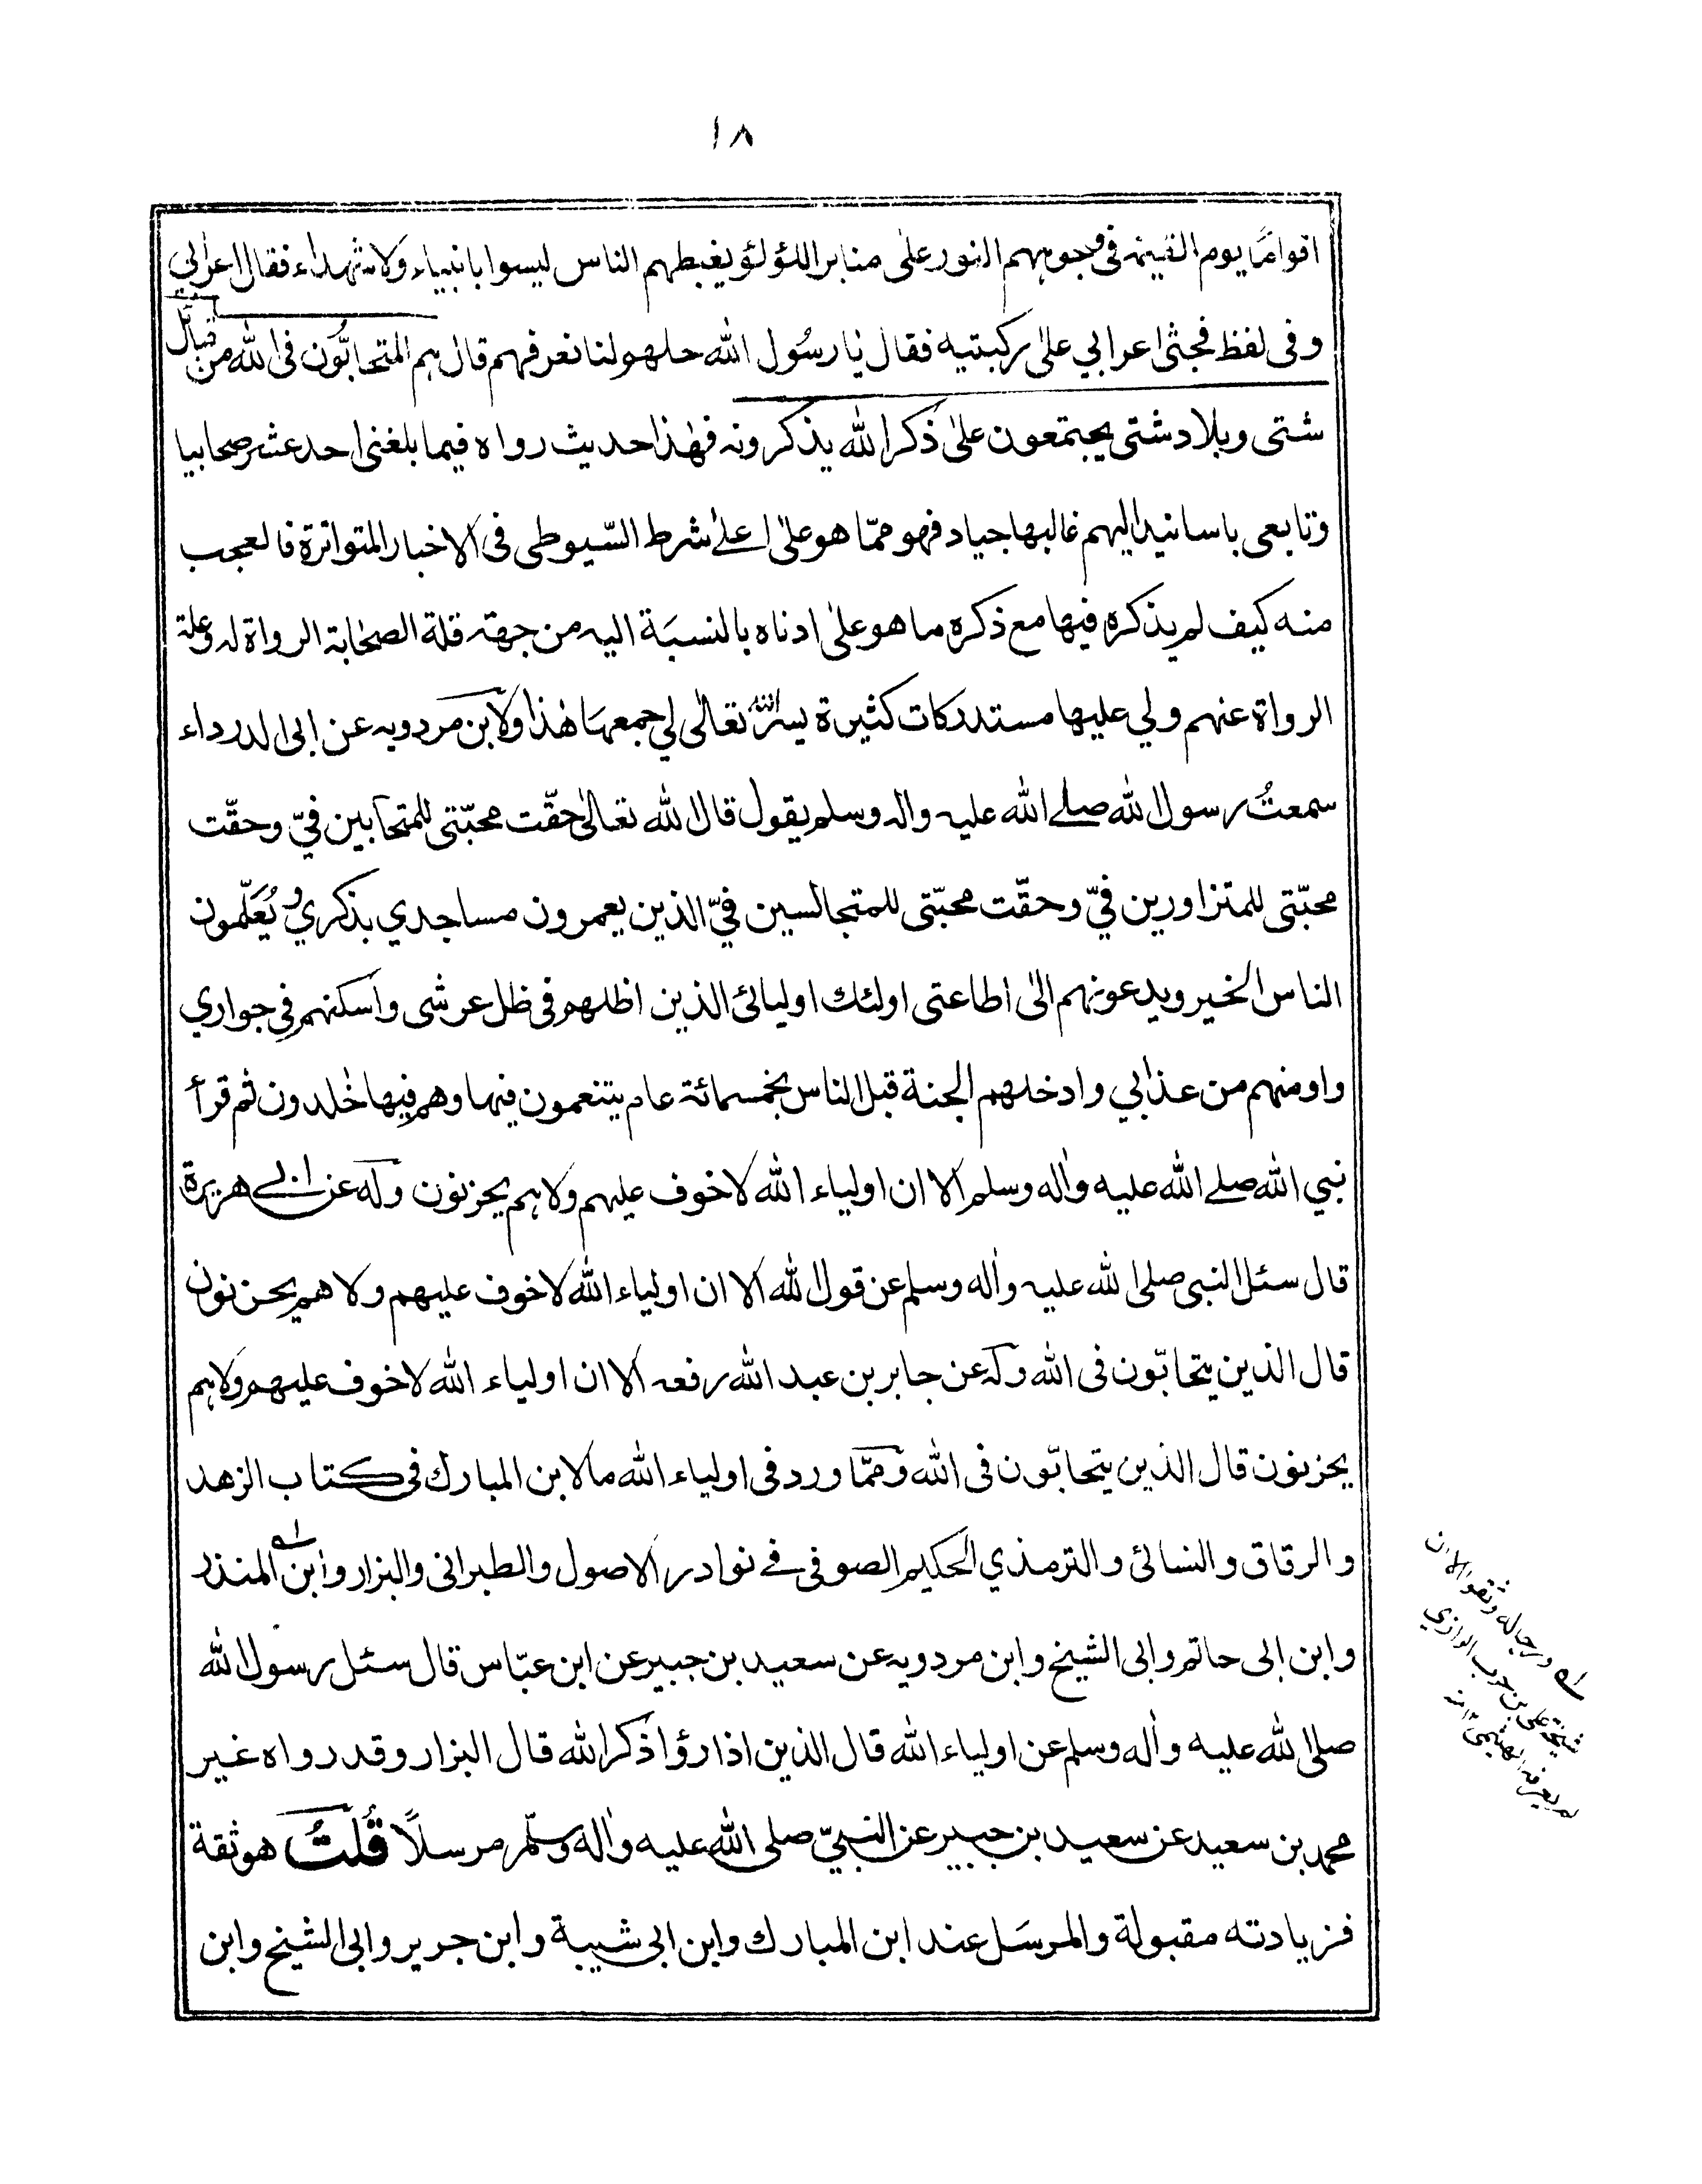 ١٨
اقوامًا يوم القيمة فى وجوههم النور على منابر اللؤلؤ يغبطهم الناس ليسوا بانبياء ولا شهداء فقال اعرابي
وفى لفظ فجثى اعرابي على ركبتيه فقال يا رسُول الله حلهم لنا نعرفهم قال هم المتحابُّون فى الله من قبائل
شتى وبلاد شتى يجتمعون على ذكر الله يذكرونه فهذا حديث رواه فيما بلغنى احد عشر صحابيا
وتابعى باسانيد اليهم غالبها جياد فهو ممّا هو على اعلى شرط السّيوطى فى الاخبار المتواترة فالعجب
منه كيف لم يذكره فيها مع ذكره ما هو على ادناه بالنسبَة اليه من جهة قلة الصحابة الرواة له وقلة
الرواة عنهم ولي عليها مستدركات كثيرة يسر الله تعالى لي جمعها هذا ولابن مردويه عن ابى الدرداء
سمعتُ رسول الله صلے الله عليه واله وسلم يقول قال الله تعالى حقّت محبّتى للمتحآبين فيّ وحقّت
محبّتى للمتزاورين فيّ وحقّت محبّتى للمتجالسين فيّ الذين يعمرون مساجدي بذكري ويُعَلّمون
الناس الخير ويدعونهم الى اطاعتى اولئك اوليائى الذين اظلهم فى ظل عرشى واسكنهم فى جواري
واومنهم من عذابي وادخلهم الجنة قبل الناس بخمسمائة عام يتنعمون فيها وهم فيها خلدون ثم قرأ
نبي الله صلے الله عليه واله وسلم الا ان اولياء الله لا خوف عليهم ولا هم يحزنون وله عن ابى هريرة
قال سئل النبى صلى الله عليه واله وسلم عن قول الله الا ان اولياء الله لا خوف عليهم ولا هم يحزنون
قال الذين يتحابّون فى الله وله عن جابر بن عبد الله رفعه الا ان اولياء الله لا خوف عليهم ولا هم
يحزنون قال الذين يتحابّون فى الله وممّا ورد فى اولياء الله ما لابن المبارك فى كتاب الزهد
والرقاق والنسائى والترمذي الحكيم الصوفى فے نوادر الاصول والطبرانى والبزار وابن المنذر
وابن ابى حاتم وابى الشيخ وابن مردويه عن سعيد بن جبير عن ابن عبّاس قال سئل رسول الله
صلى الله عليه واله وسلم عن اولياء الله قال الذين اذا رؤا ذكر الله قال البزار وقد رواه غير
محمد بن سعيد عن سعيد بن جبير عن النبيّ صلى الله عليه واله وسلّم مرسلاً قُلتُ هو ثقة
فزيادته مقبولة والمرسَل عند ابن المبارك وابن ابى شيبة وابن جرير وابى الشيخ وابن
له ورجاله وثقوا الا ان
شيخه على بن حرب الرازي
لم يعرفه الهيثمى ١٢ منه